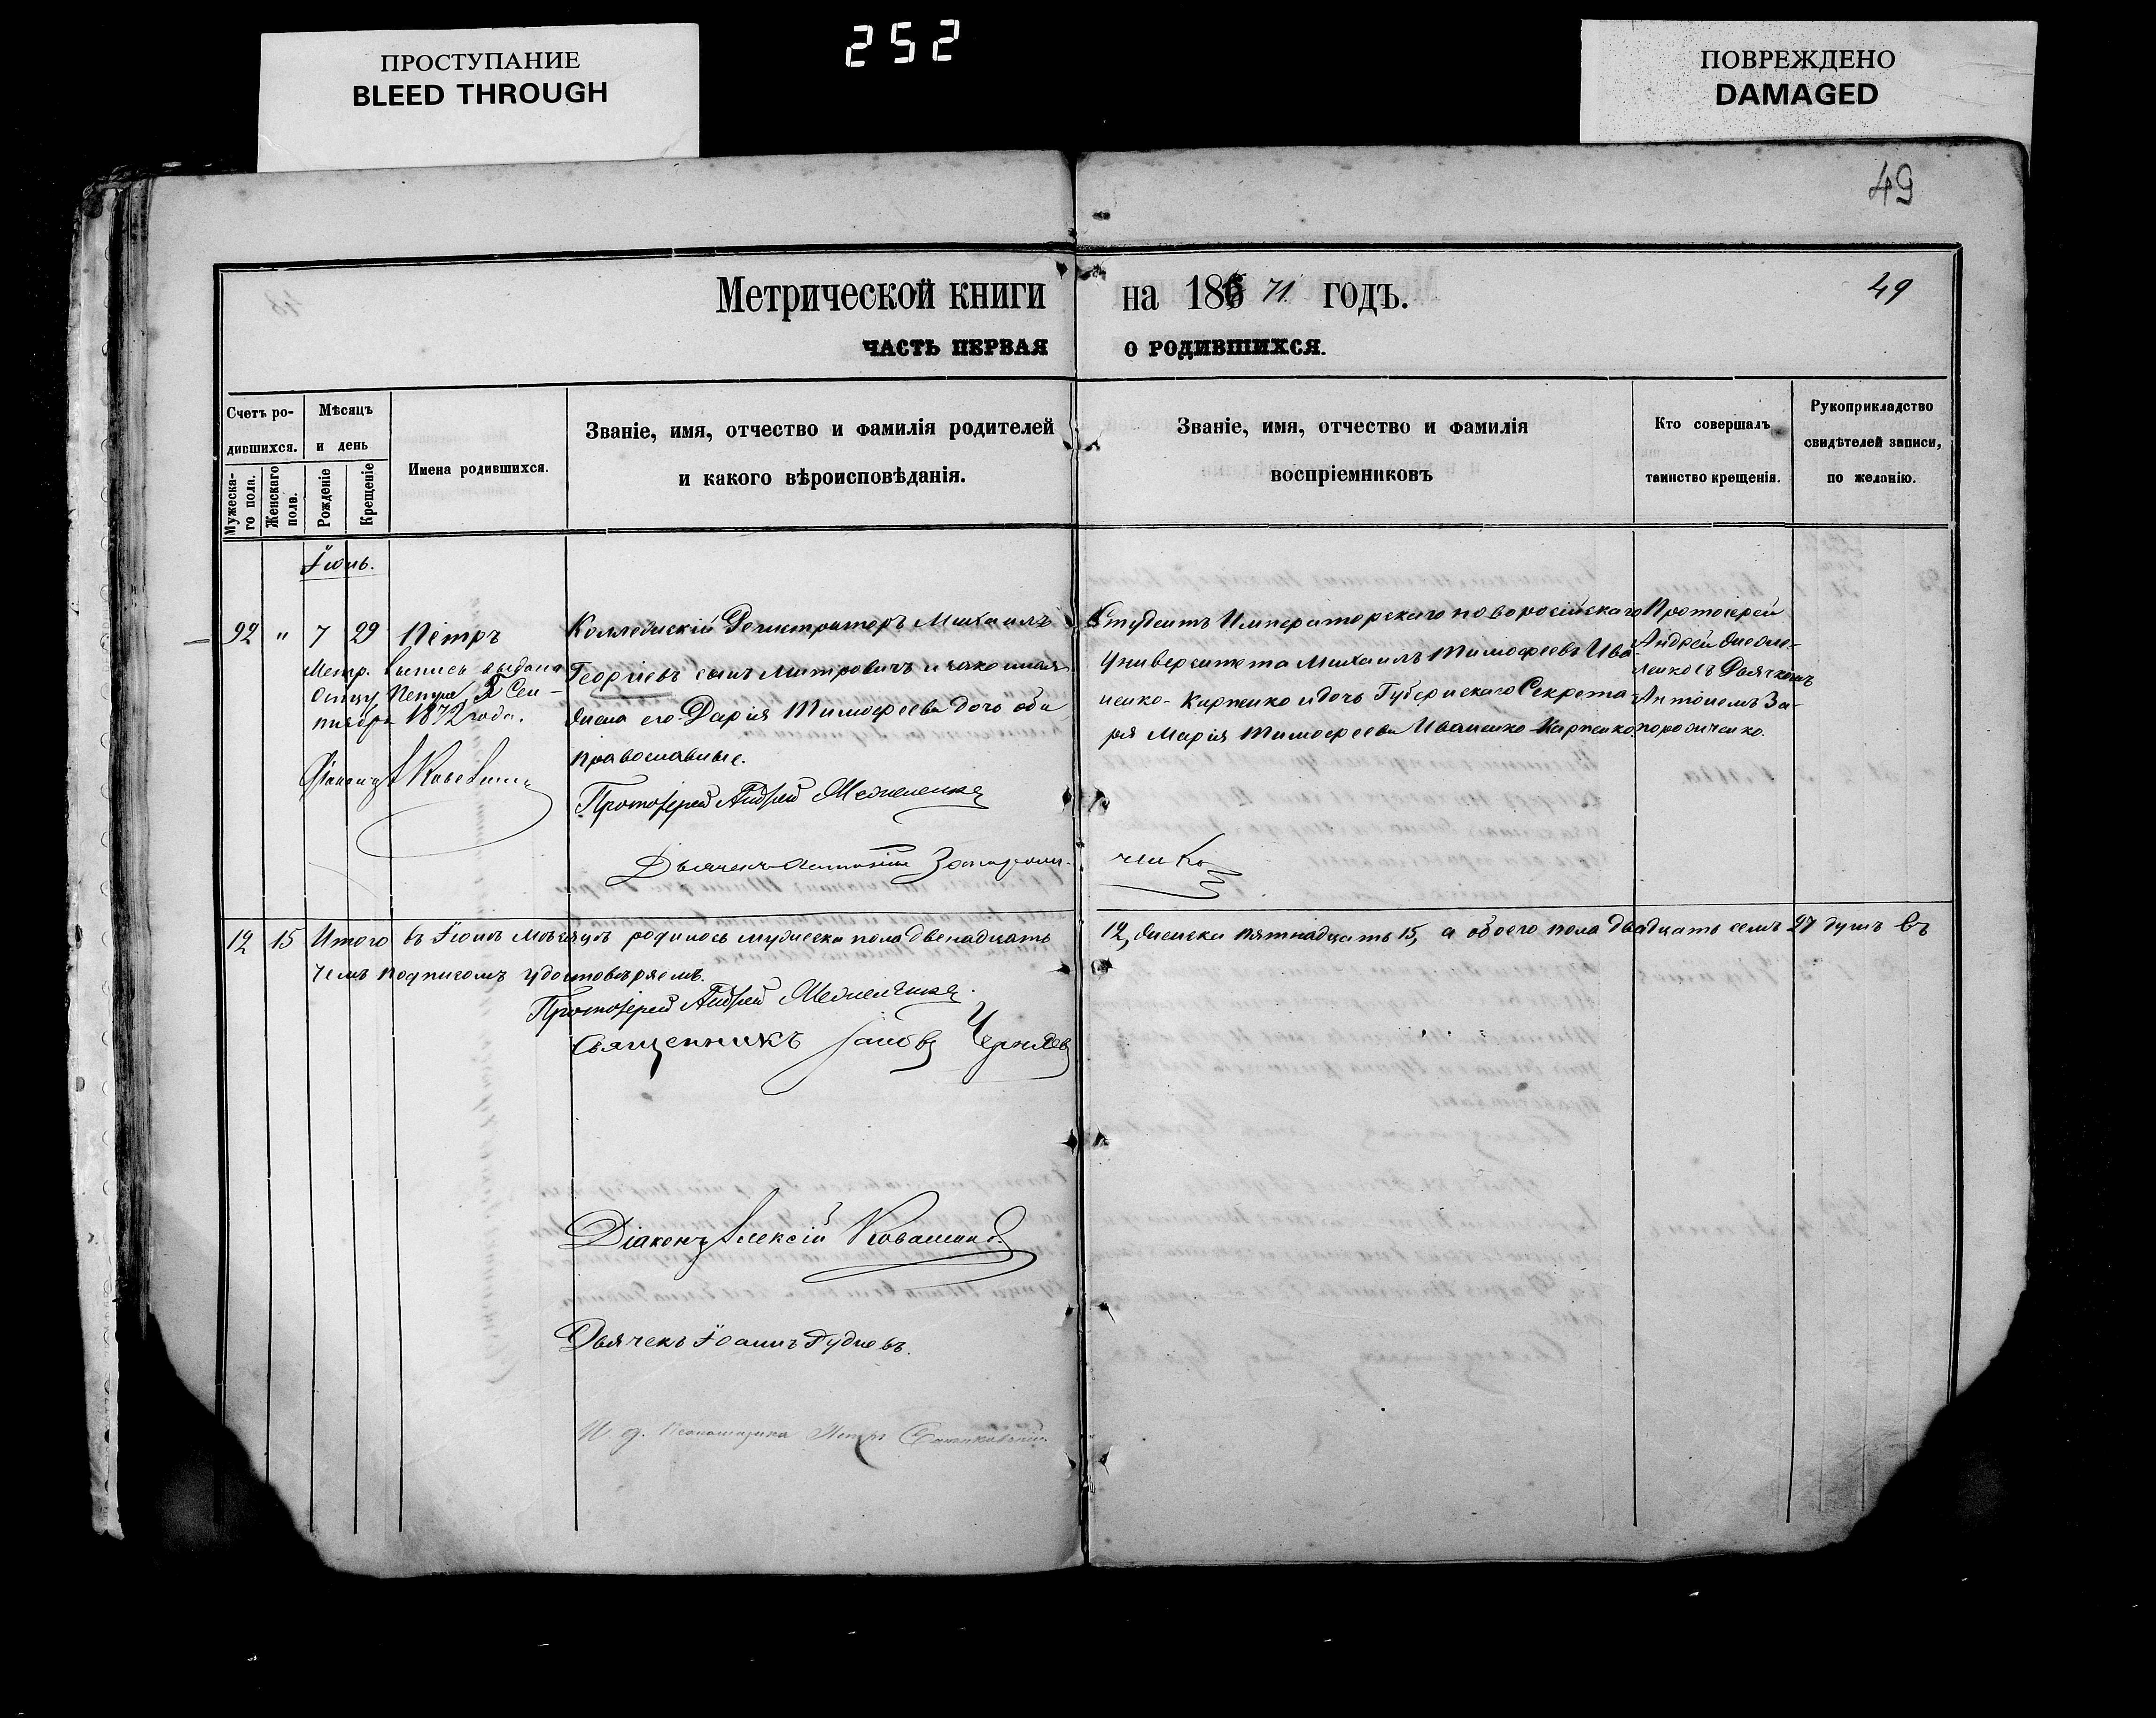 ПРОСТУПАНИЕ
BLEED THROUGH
252
ПОВРЕЖДЕНО
DAMAGED
49
Метрической книги на 186 71. годъ.
49
ЧАСТЬ ПЕРВАЯ О РОДИВШИХСЯ.
Счетъ ро-
дившихся.
Мужеска-
го пола.
Женскаго
пола.
Мѣсяцъ
и день
Рожденіе
Крещеніе
Имена родившихся.
Званіе, имя, отчество и фамилія родителей
и какого вѣроисповѣданія.
Званіе, имя, отчество и фамилія
воспріемниковъ
Кто совершалъ
таинство крещенія.
Рукоприкладство
свидѣтелей записи,
по желанію.
Іюнь.
92 " 7 29 Петръ
Метр. выпись выдана
отцу Петра, Сен-
тября 1872 года.
Діаконъ
Коллежскій Регистраторъ Михаилъ
Георгіевъ сынъ Митровичъ и законная
жена его Дарія Тимофеева дочь оба
православные.
Протоіерей Андрей
Дьячекъ Антоній Запорожченко
Студентъ Императорскаго новоросійскаго
Университета Михаилъ Тимофеевъ Ива-
ненко-Карпенко и дочь Губернскаго Секрета-
ря Марія Тимофеева Иваненко-Карпенко
Протоіерей
Андрей
съ Дьячкомъ
Антоніемъ За-
порожченко.
12 15 Итого въ Іюнѣ мѣсяцѣ родилось мужеска пола двенадцать 12, женска пятнадцать 15, а обоего пола двадцать семь 27 душъ въ
чемъ подписомъ удостовѣряемъ.
Протоіерей Андрей
Священникъ Іаковъ Чернявъ
Діаконъ Алексій
Дьячекъ Іоаннъ
И. д. Псаломщика Петръ